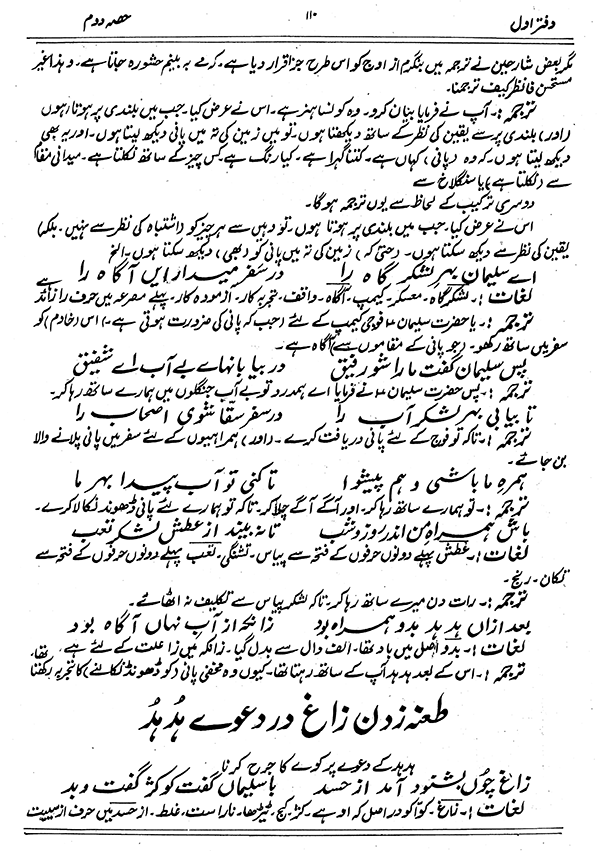 دفتر اول ۱۱۰ حصہ دوم
مگر بعض شارحین نے ترجمہ میں بنگرم از اوج کو اس طرح جزا قرار دیا ہے۔ کہ مے بہ بینم حشو رہ جاتا ہے۔ وہذا غیر
مستحسن فانظر کیف ترجمنا۔
ترجمہ :۔ آپ نے فرمایا بیان کرو۔ وہ کونسا ہنر ہے۔ اس نے عرض کیا۔ جب میں بلندی پر ہوتا ہوں
(اور) بلندی پر سے یقین کی نظر کے ساتھ دیکھتا ہوں۔ تو میں زمین کی تہ میں پانی دیکھ لیتا ہوں۔ اور یہ بھی
دیکھ لیتا ہوں۔ کہ وہ (پانی) کہاں ہے۔ کتنا گہرا ہے۔ کیا رنگ ہے۔ کس چیز کے ساتھ نکلتا ہے۔ میدانی مقام
سے (نکلتا ہے) یا سنگلاخ سے
دوسری ترکیب کے لحاظ سے یوں ترجمہ ہوگا۔
اس نے عرض کیا۔ جب میں بلندی پر ہوتا ہوں۔ تو وہیں سے ہر چیز کو (اشتباہ کی نظر سے نہیں۔ بلکہ)
یقین کی نظر سے دیکھ سکتا ہوں۔ (حتیٰ کہ) زمین کی تہ میں پانی کو (بھی) دیکھ سکتا ہوں۔ الخ
اے سلیمان بہر لشکر گاہ را در سفر میدار ایں آگاہ را
لغات :۔ لشکر گاہ۔ معسکر۔ کیمپ۔ آگاہ۔ واقف۔ تجربہ کار۔ آزمودہ کار۔ پہلے مصرعہ میں حرف را زائد ہے
ترجمہ :۔ یا حضرت سلیمان ؑ فوجی کیمپ کے لئے (جب کہ پانی کی ضرورت ہوتی ہے۔) اس (خادم) کو
سفر میں ساتھ رکھو۔ (جو پانی کے مقاموں سے) آگاہ ہے۔
پس سلیمان گفت ما را شو رفیق در بیابانہاے بے آب اے شفیق
ترجمہ :۔ پس حضرت سلیمان ؑ نے فرمایا اے ہمدرد تو بے آب جنگلوں میں ہمارے ساتھ رہا کر۔
تا بیابی بہر لشکر آب را در سفر سقا شوی اصحاب را
ترجمہ :۔ تاکہ تو فوج کے لئے پانی دریافت کرے۔ (اور) ہمراہیوں کے لئے سفر میں پانی پلانے والا
بن جائے۔
ہمرہِ ما باشی و ہم پیشوا تا کنی تو آب پیدا بہر ما
ترجمہ :۔ تو ہمارے ساتھ رہا کر۔ اور آگے آگے چلا کر۔ تاکہ تو ہمارے لئے پانی ڈھونڈ نکالا کرے۔
باش ہمراہِ من اندر روز و شب تا نہ بیند از عطش لشکر تعب
لغات :۔ عطش پہلے دونوں حرفوں کے فتحہ سے پیاس۔ تشنگی۔ تعب پہلے دونوں حرفوں کے فتحہ سے
تکان۔ رنج۔
ترجمہ :۔ رات دن میرے ساتھ رہا کر۔ تاکہ لشکر پیاس سے تکلیف نہ اٹھائے۔
بعد ازاں ہدہد بدو ہمراہ بود زانکہ از آبِ نہاں آگاہ بود
لغات :۔ بدو اصل میں باو تھا۔ الف دال سے بدل گیا۔ زانکہ میں زا علت کے لئے ہے۔
ترجمہ :۔ اس کے بعد ہدہد آپ کے ساتھ رہتا تھا۔ کیوں وہ مخفی پانی (کو ڈھونڈ نکالنے) کا تجربہ رکھتا تھا۔
طعنہ زدن زاغ در دعوے ہُدہُد
ہدہد کے دعوے پر کوے کا جرح کرنا
زاغ چوں بشنود آمد از حسد با سلیماں گفت کو کژ گفت و بد
لغات :۔ زاغ۔ کوّا کو دراصل کہ او ہے۔ کژ۔ کج۔ ٹیڑھا۔ ناراست۔ غلط۔ از حسد میں حرف از سببیت